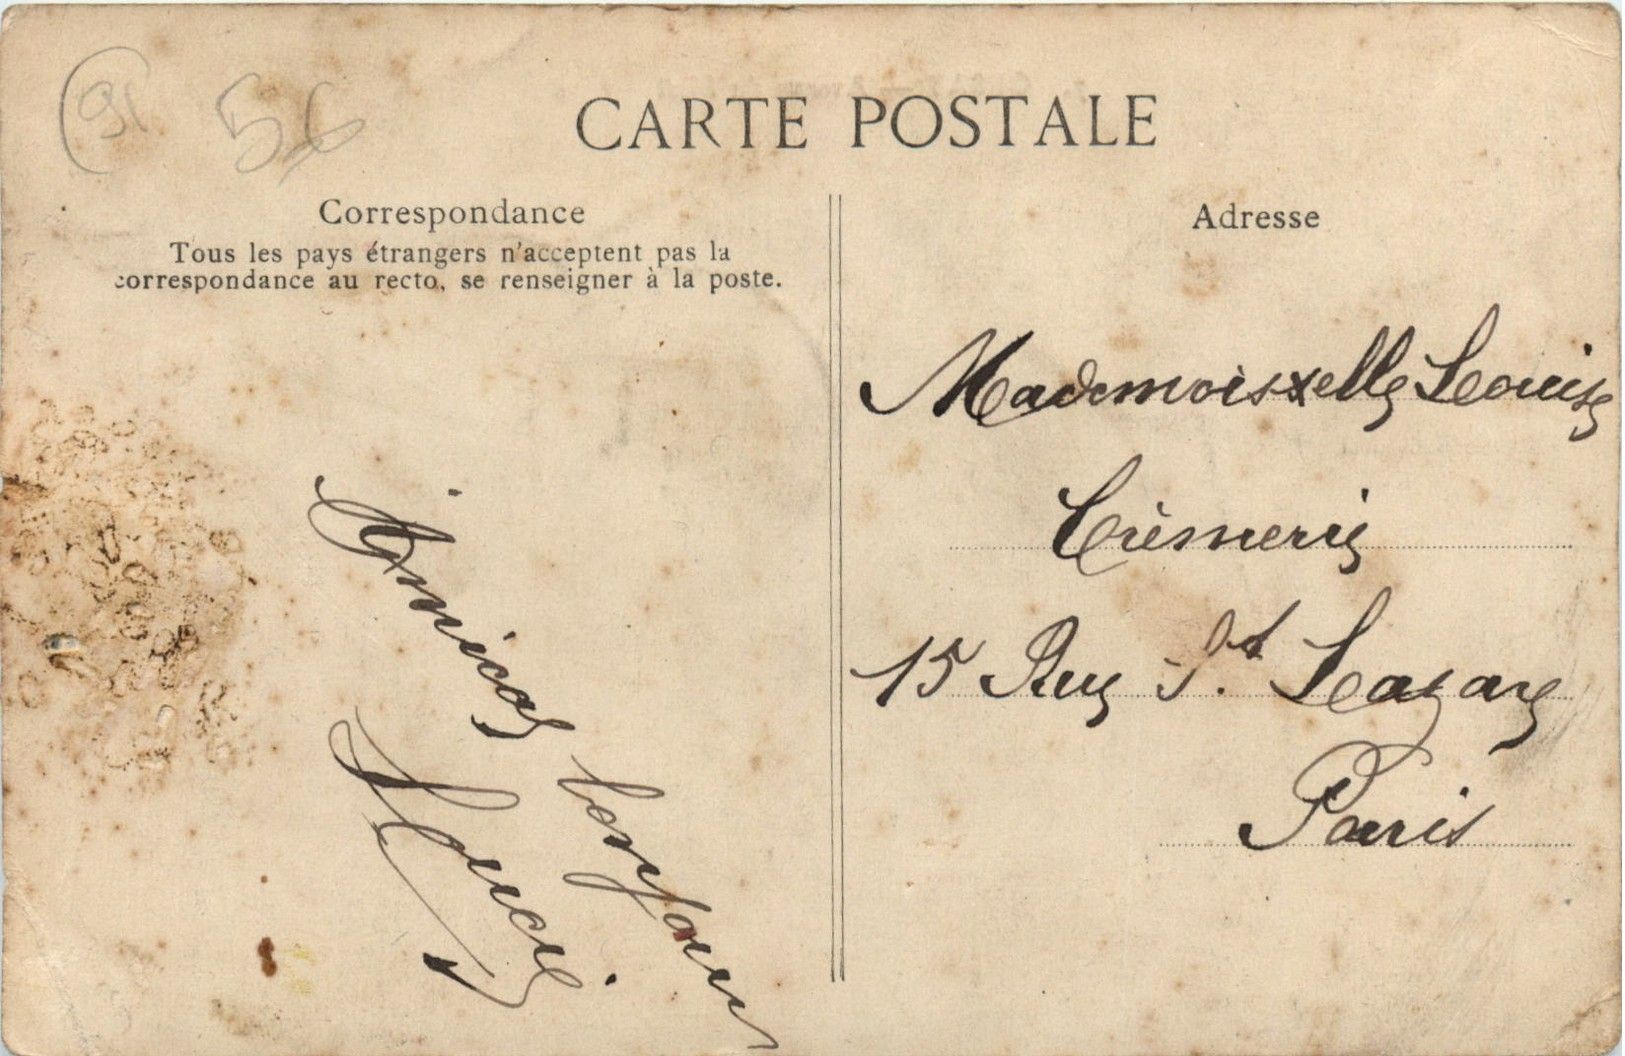 91
56
CARTE POSTALE
Correspondance
Tous les pays étrangers n'acceptent pas la
correspondance au recto, se renseigner à la poste.
Amical bonjour
Lucie
Adresse
Mademoisxelle Louise
Crèmerie
15 Rue St. Lazare
Paris